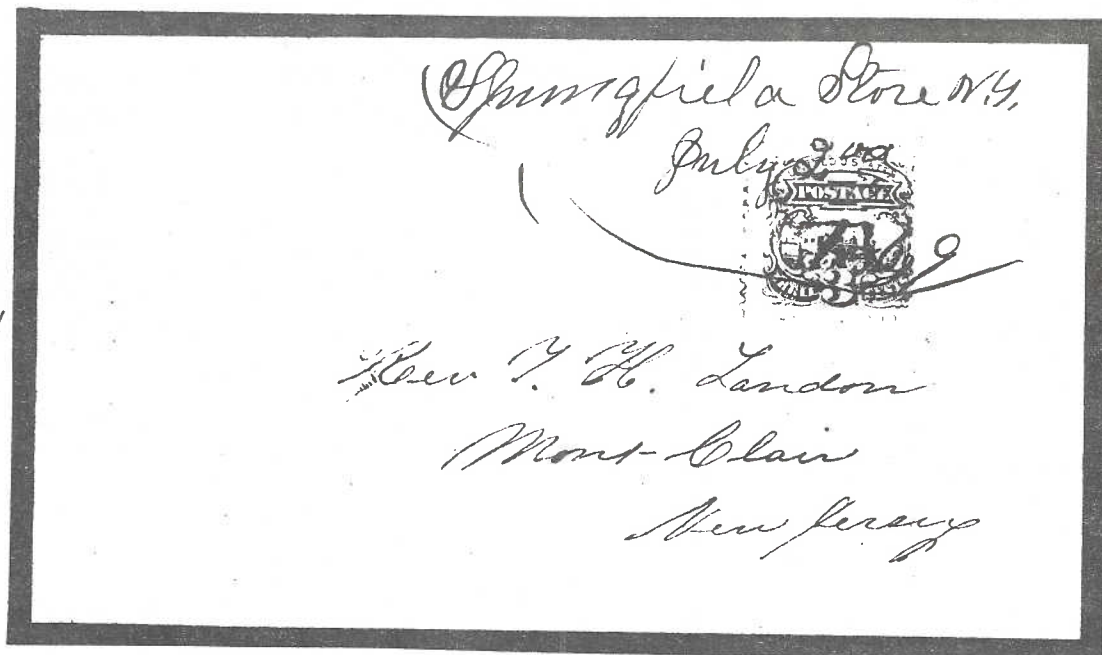 Springfield Store N.Y.
July 2nd
POSTAGE
1869
3
Rev T. H. Landon
Mont-Clair
New Jersey